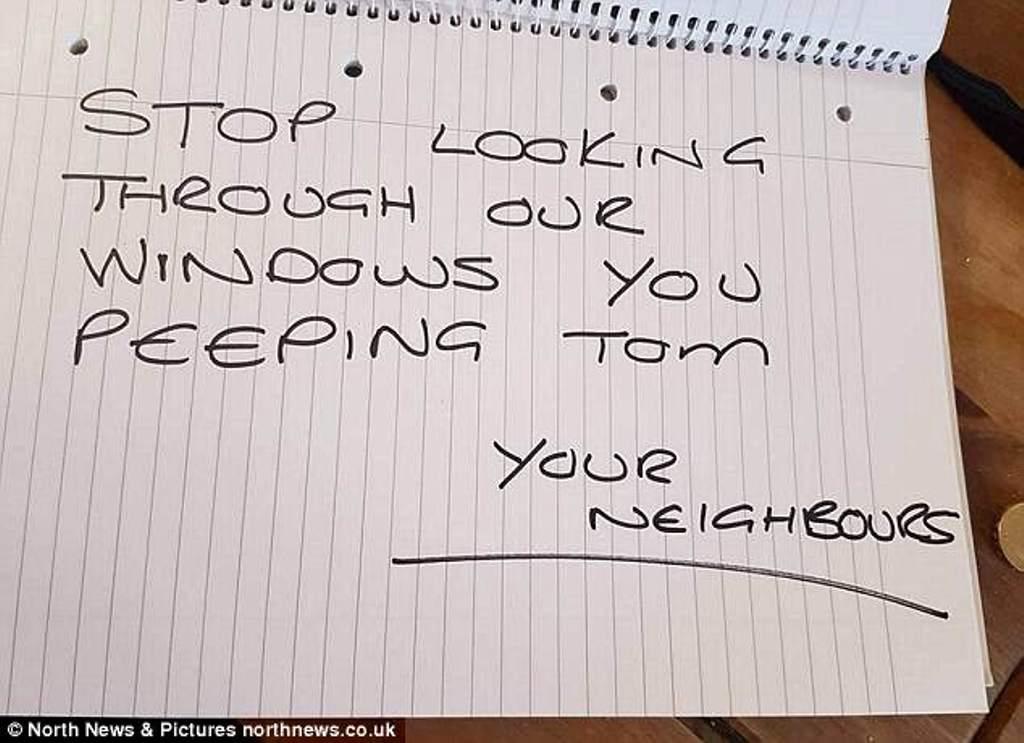 STOP LOOKING
THROUGH OUR
WINDOWS YOU
PEEPING TOM
YOUR
NEIGHBOURS
© North News & Pictures northnews.co.uk